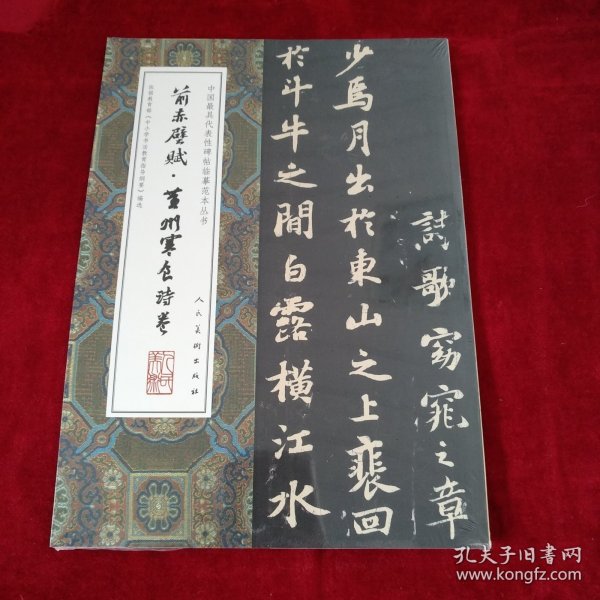 詩歌窈窕之章
少焉月出於東山之上裴回
於斗牛之間白露橫江水
中国最具代表性碑帖临摹范本丛书
前赤壁賦·黄州寒食詩卷
依据教育部《中小学书法教育指导纲要》编选
人民美術出版社
孔夫子旧书网
www.kongfz.com